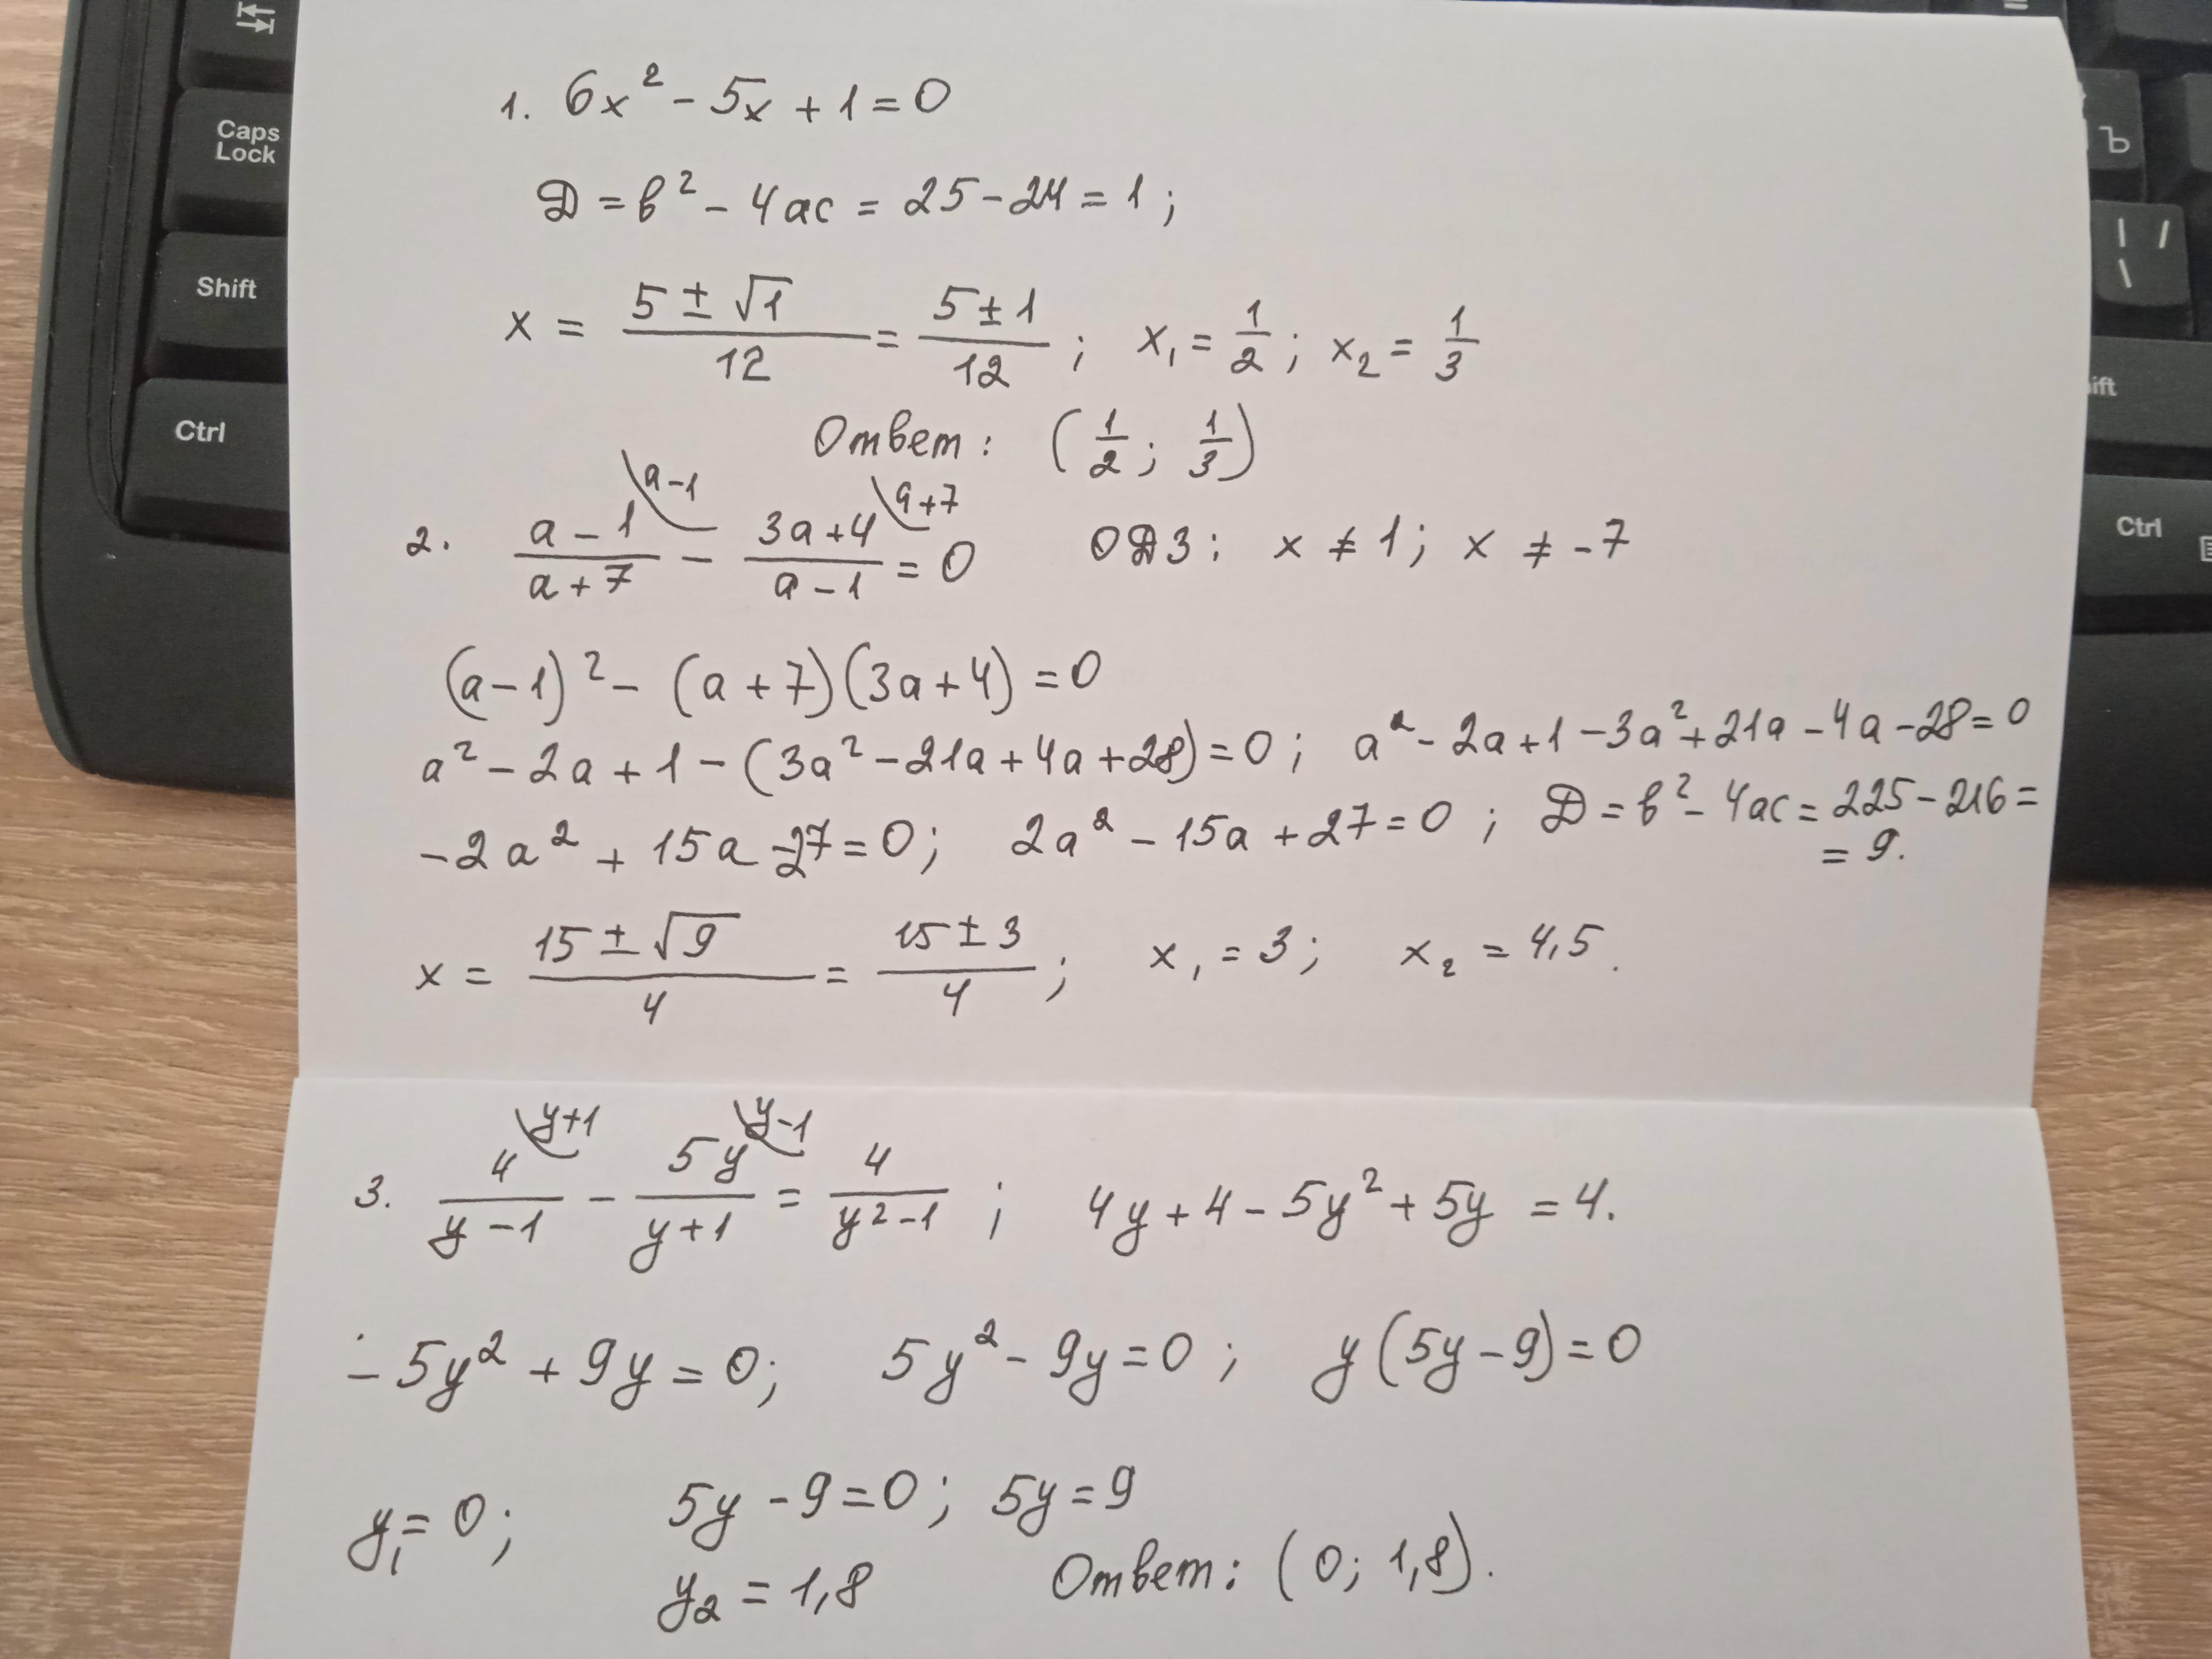 Caps Lock
Shift
Ctrl
Ъ
ift
Ctrl
1. 6x² - 5x + 1 = 0
Д = в² - 4ac = 25 - 24 = 1 ;
x = (5 ± √1)/12 = (5 ± 1)/12 ; x₁ = 1/2 ; x₂ = 1/3
Ответ: (1/2 ; 1/3)
a-1 a+7
2. (a - 1)/(a + 7) - (3a + 4)/(a - 1) = 0 ОДЗ: x ≠ 1 ; x ≠ -7
(a - 1)² - (a + 7)(3a + 4) = 0
a² - 2a + 1 - (3a² - 21a + 4a + 28) = 0 ; a² - 2a + 1 - 3a² + 21a - 4a - 28 = 0
-2a² + 15a - 27 = 0 ; 2a² - 15a + 27 = 0 ; Д = в² - 4ac = 225 - 216 =
= 9.
x = (15 ± √9)/4 = (15 ± 3)/4 ; x₁ = 3 ; x₂ = 4,5.
y+1 y-1
3. 4/(y - 1) - 5y/(y + 1) = 4/(y² - 1) ; 4y + 4 - 5y² + 5y = 4.
- 5y² + 9y = 0 ; 5y² - 9y = 0 ; y(5y - 9) = 0
y₁ = 0 ; 5y - 9 = 0 ; 5y = 9
y₂ = 1,8 Ответ: (0; 1,8).